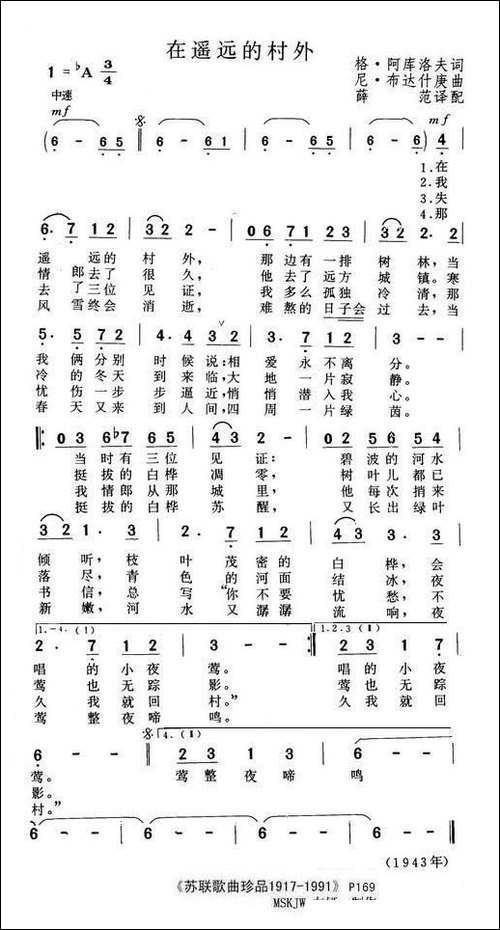 在遥远的村外
1=♭A 3/4
格·阿库洛夫词
尼·布达什庚曲
薛 范译配
中速
mf
6 - 65 6 - 65 6 - 61 6 - 65 6 - (65) 4
mf
1.在
2.我
3.失
4.那
6. 7 12 32 - 06 71 23 32 2. 2
遥 远的 村 外, 那 边有 一排 树 林,当
情 郎去 了 很 久, 他 去了 远方 城 镇。寒
去 了三 位 见 证, 我 多么 孤独 冷 清,那
风 雪终 会 消 逝, 难 熬的 日子会 过 去,当
5. 5 72 4. 4 32 3. 7 12 3 - -
我 俩分别 时 候说:相 爱 永不离 分。
冷 的冬天 到 来临,大 地 一片寂 静。
忧 伤一步 步 逼近,悄 悄 潜入我 心。
春 天又来 到 人间,四 周 一片绿 茵。
03 6♭7 65 43 - 02 56 54
当 时有 三位 见 证: 碧 波的 河水
挺 拔的 白桦 凋 零, 树 叶儿 都已
我 情郎 从那 城 里, 他 每次 捎来
挺 拔的 白桦 苏 醒, 又 长出 绿叶
32 1. 3 2. 7 12 43 3. 3
倾听,枝 叶 茂密的 白 桦,会
落尽,青 色 的河面 结 冰,夜
书信,总 写“你不要 忧 愁,不
新嫩,河 水 又潺潺 流 响,夜
1.-4.(1) 1.2.3(1)
2. 7 12 3 - - 23 1 7
唱 的小夜 莺。 唱的小夜
莺 也无踪 影。 莺也无踪
久 我就回 村。” 久我就回
莺 整夜啼 鸣。
4.(1)
6 - - 23 2 1 3 6 - -
莺。 莺整 夜 啼 鸣
影。
村。”
6 - 65 6 - 65 6 - - 6 - -
(1943年)
《苏联歌曲珍品1917-1991》 P169
MSKJW